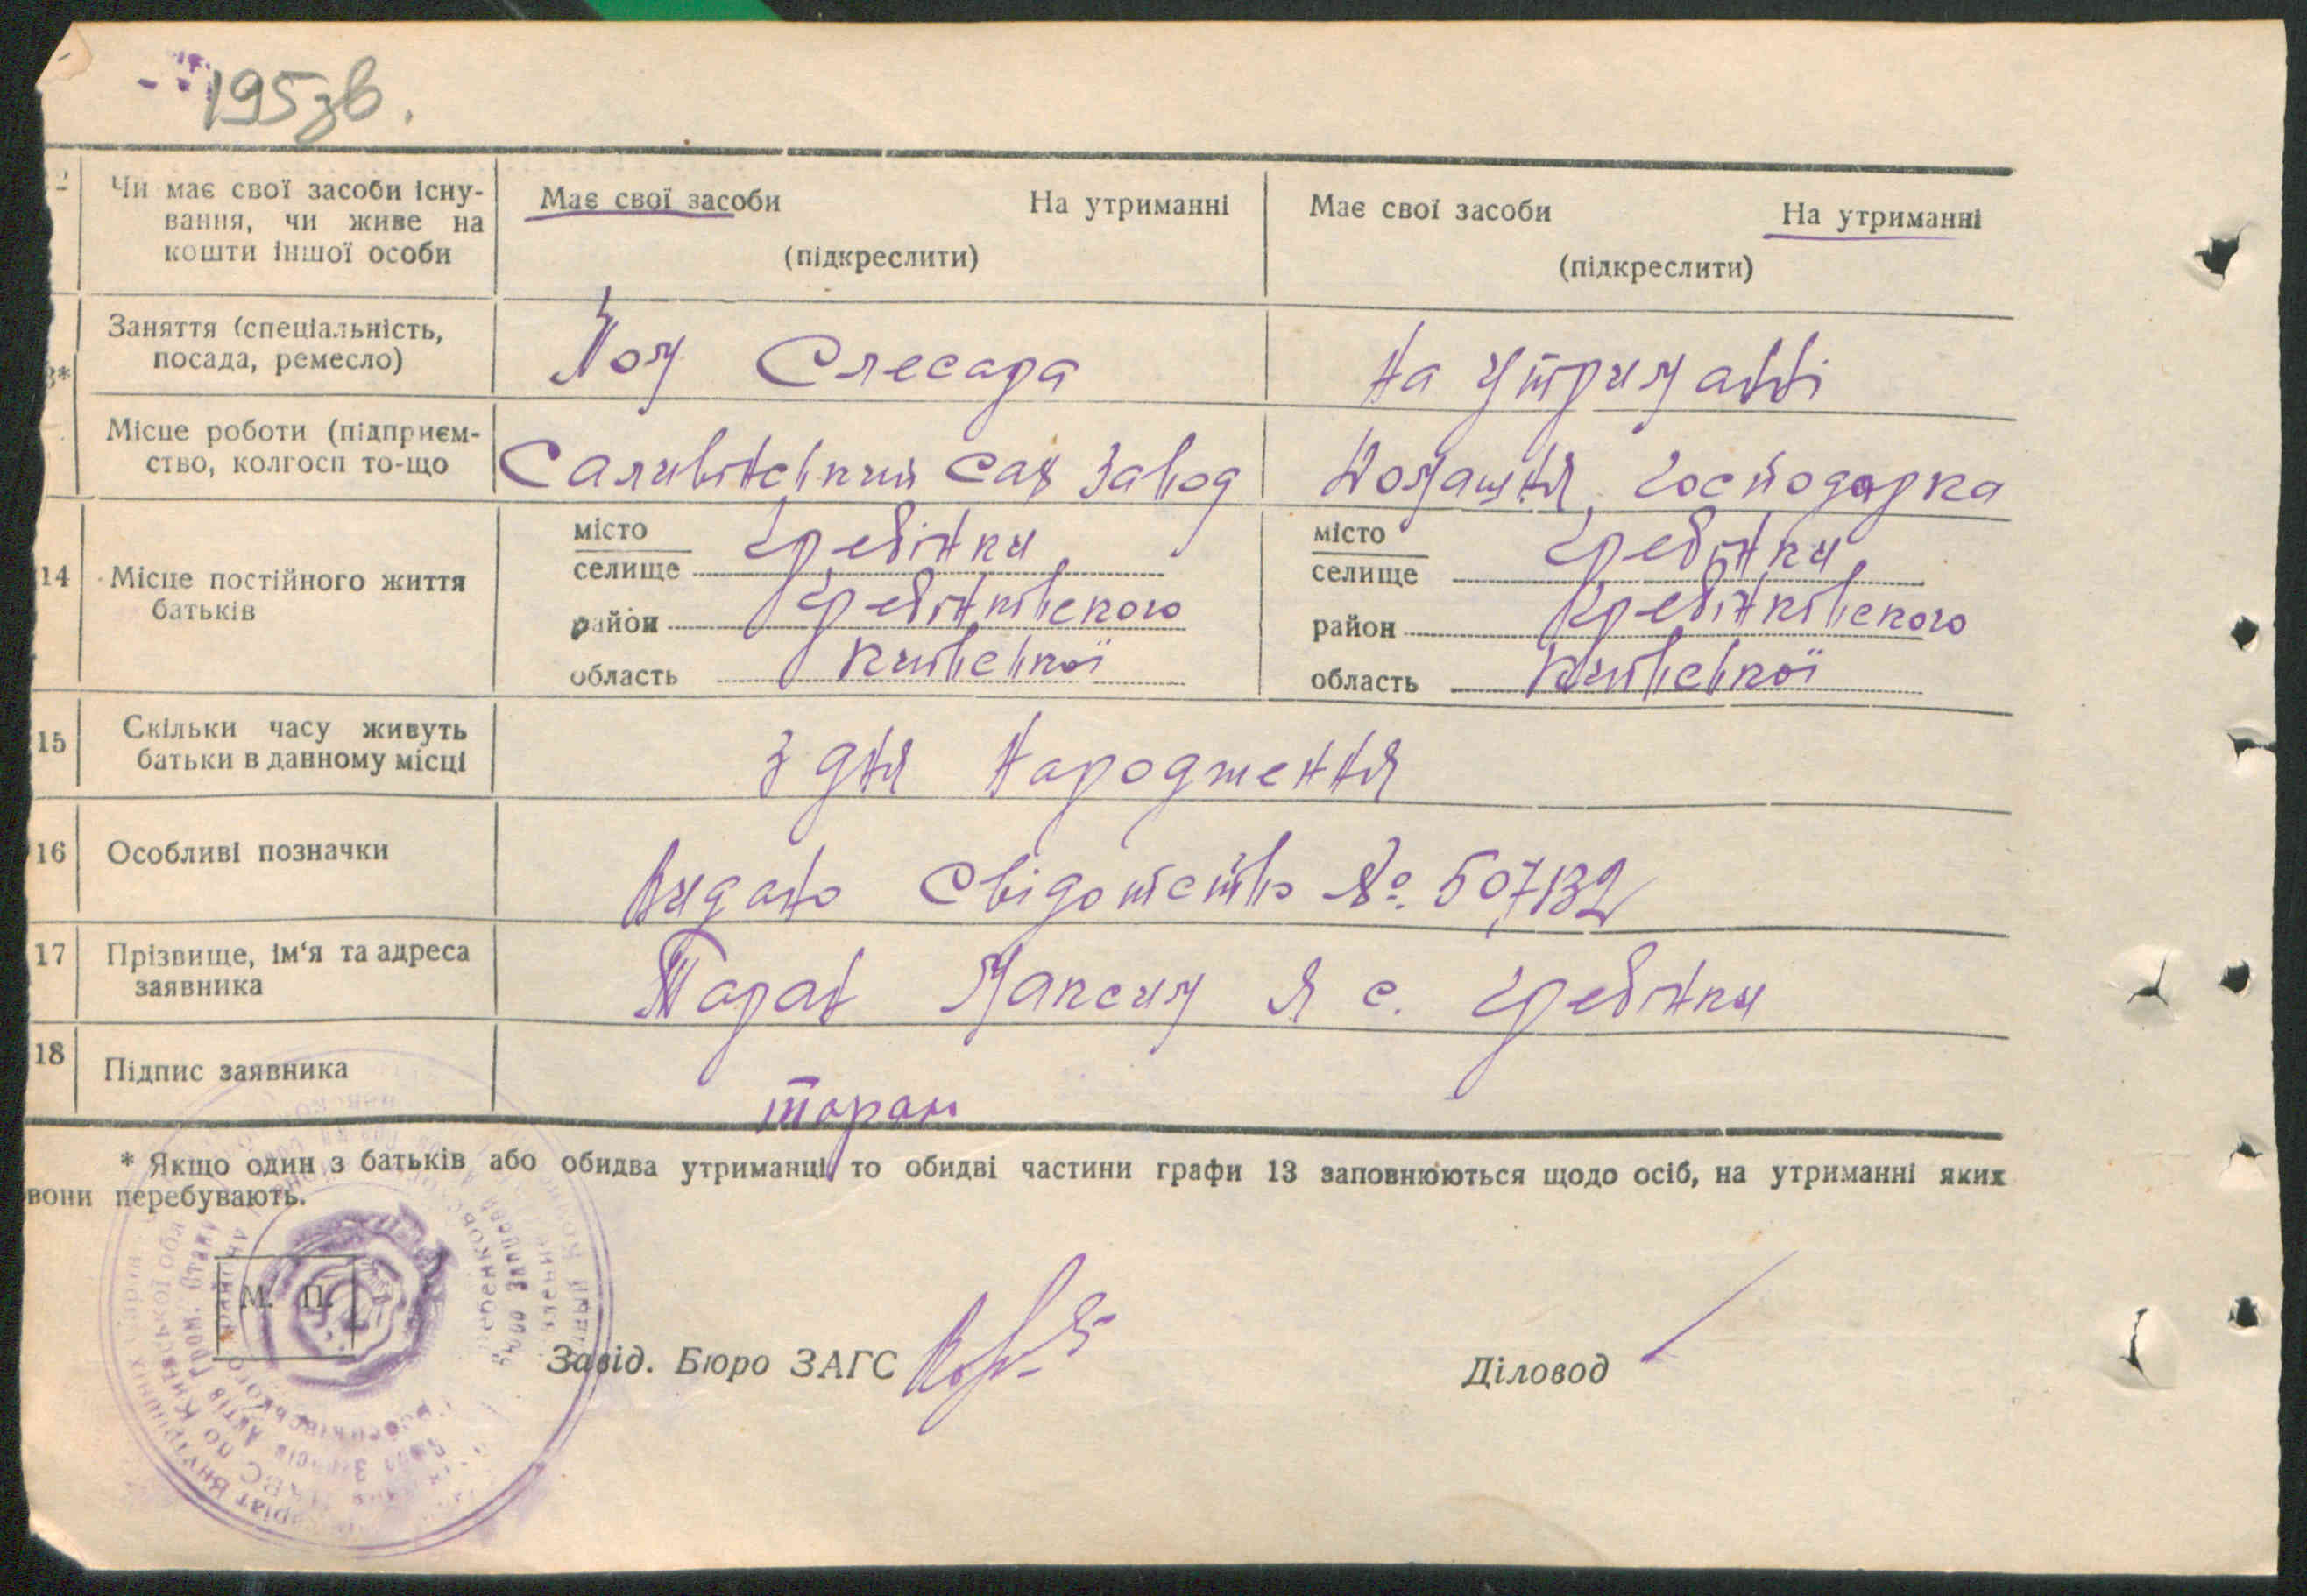 195зв.
12 Чи має свої засоби існу-
вання, чи живе на
кошти іншої особи
Має свої засоби На утриманні
(підкреслити)
Має свої засоби На утриманні
(підкреслити)
Заняття (спеціальність,
посада, ремесло)
Пом Слесара
На утриманні
3*
Місце роботи (підприєм-
ство, колгосп то-що
Саливінський сах завод
Домашня господарка
14 Місце постійного життя
батьків
місто
селище Гребінки
район Гребінківского
область Київської
місто
селище Гребінки
район Гребінківского
область Київської
15 Скільки часу живуть
батьки в данному місці
З дня народження
16 Особливі позначки
Видано свідотство № 507132
17 Прізвище, ім‘я та адреса
заявника
Таран Максим Я с. Гребінки
18 Підпис заявника
таран
* Якщо один з батьків або обидва утриманці, то обидві частини графи 13 заповнюються щодо осіб, на утриманні яких
вони перебувають.
М. П.
Завід. Бюро ЗАГС
Діловод